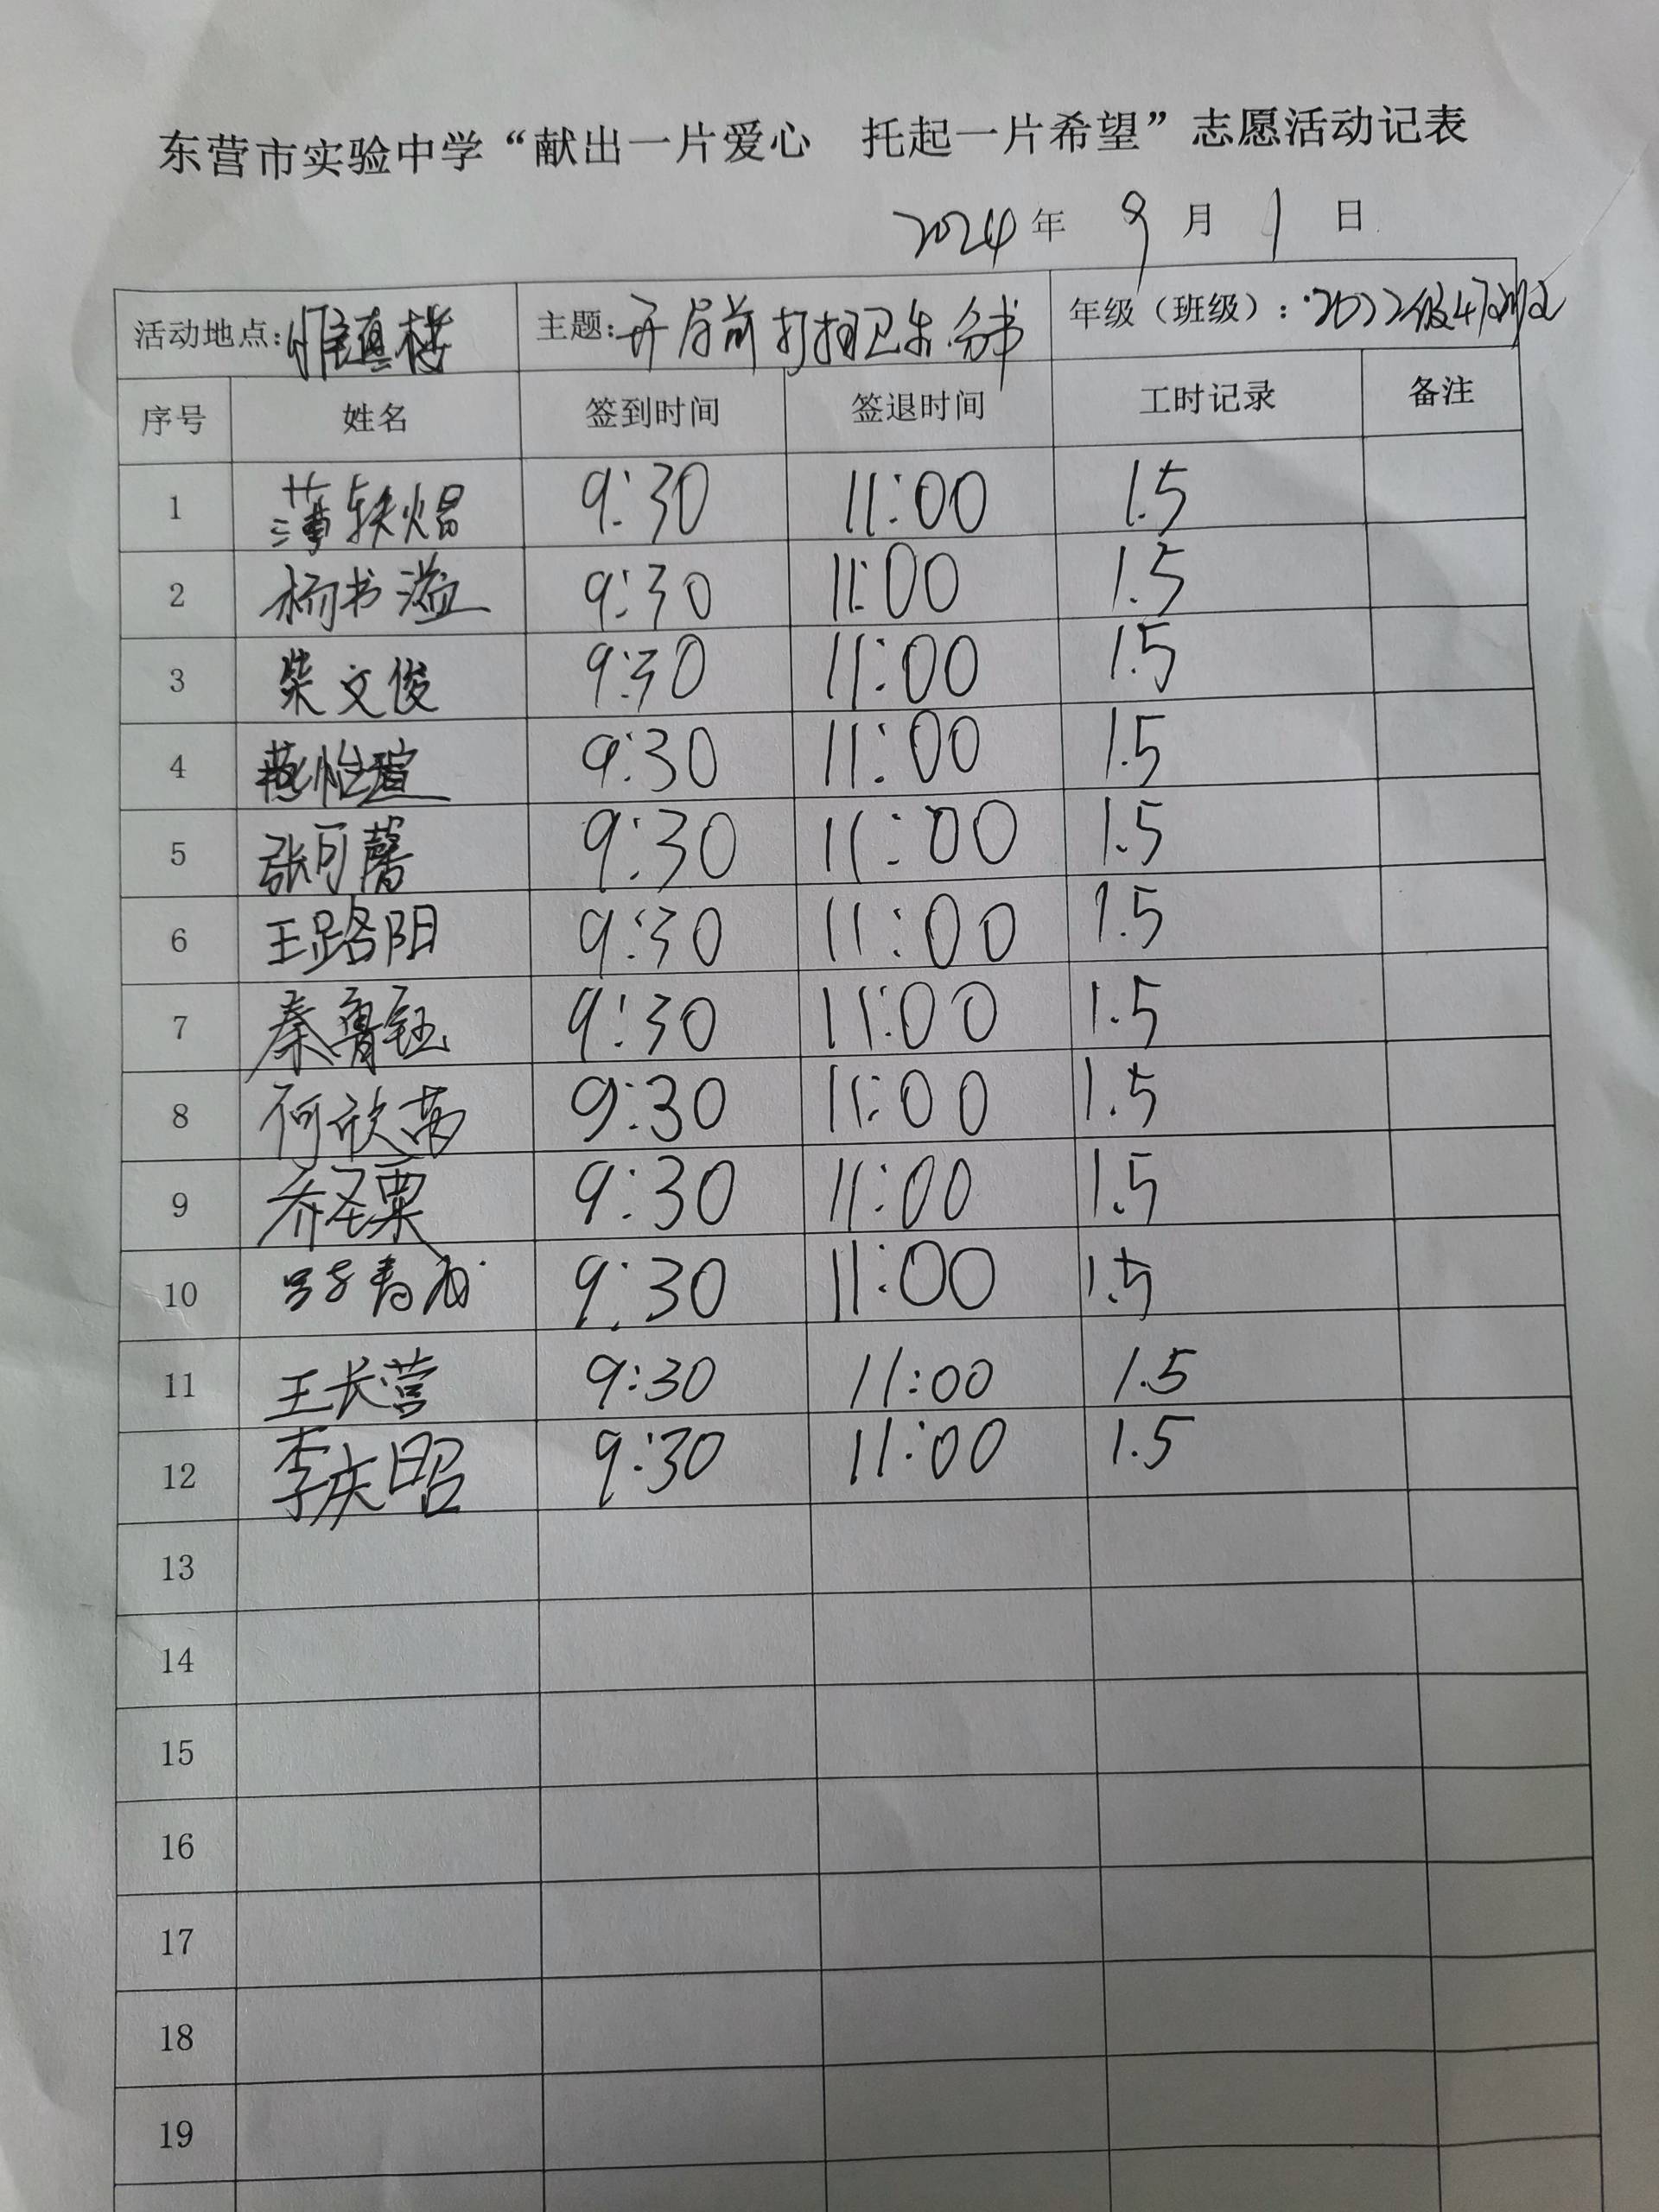 东营市实验中学“献出一片爱心 托起一片希望”志愿活动记表
2024年 9 月 1 日
活动地点: 惟真楼 主题: 开局前打扫卫生.分书 年级（班级）: 2022级47班
序号 姓名 签到时间 签退时间 工时记录 备注
1 薄轶焜 9:30 11:00 1.5
2 杨书溢 9:30 11:00 1.5
3 柴文俊 9:30 11:00 1.5
4 怡瑄 9:30 11:00 1.5
5 张可馨 9:30 11:00 1.5
6 王路阳 9:30 11:00 1.5
7 秦鲁钰 9:30 11:00 1.5
8 何欣芮 9:30 11:00 1.5
9 乔圣粟 9:30 11:00 1.5
10 9:30 11:00 1.5
11 王长营 9:30 11:00 1.5
12 李庆昭 9:30 11:00 1.5
13
14
15
16
17
18
19